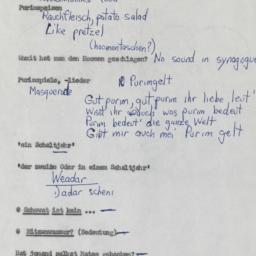 Purimspeisen
Rauchfleisch, potato salad
Like pretzel
(haomentaschen?)
Womit hat man den Haman geschlagen? No sound in synagogue
Purimspiele, -lieder
Purimgelt
Masquerade
Gut purim, gut purim ihr liebe leut'
Wisst ihr auch was purim bedeit
Purim bedeit' die ganze Welt
Gibt mir auch mei Purim gelt
"ein Schaltjahr"
"der zweite Oder in einem Schaltjahr"
Weadar
adar scheni
@ Schewat ist kein ... —
@ Hitzewasser? (Bedeutung) —